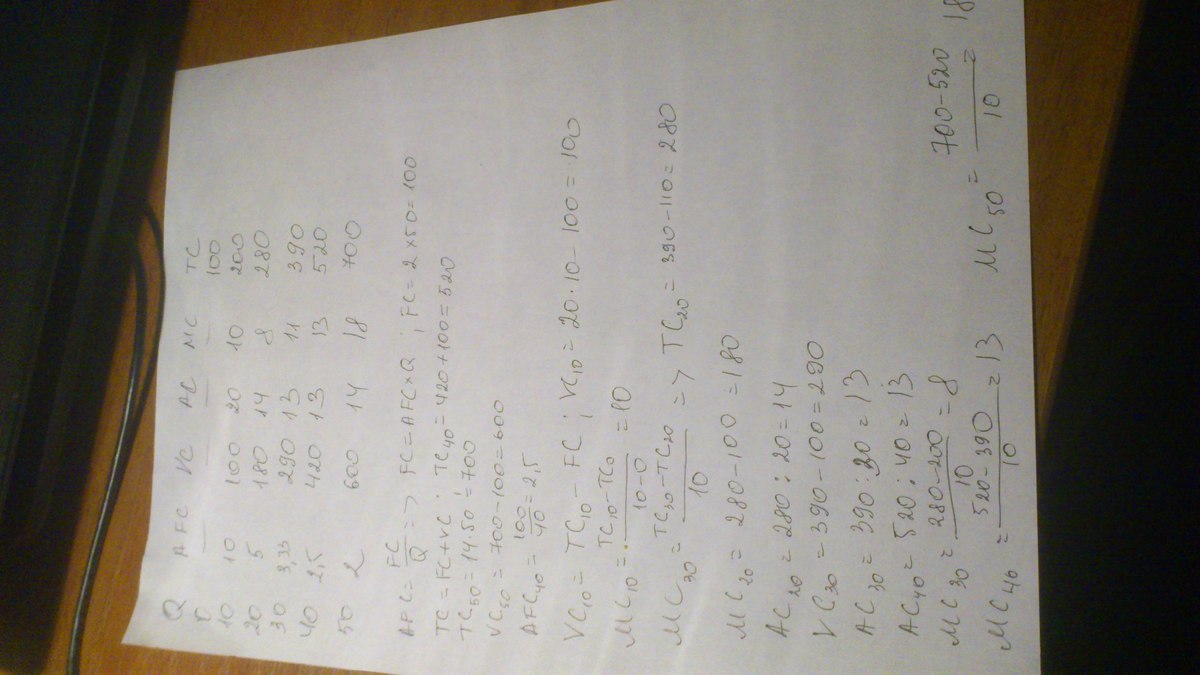 Q AFC VC AC MC TC
0 — — — — 100
10 10 100 20 10 200
20 5 180 14 8 280
30 3,33 290 13 11 390
40 2,5 420 13 13 520
50 2 600 14 18 700
AFC = FC/Q => FC = AFC × Q ; FC = 2 × 50 = 100
TC = FC + VC ; TC40 = 420 + 100 = 520
TC50 = 14 · 50 = 700
VC50 = 700 - 100 = 600
AFC40 = 100/40 = 2,5
VC10 = TC10 - FC ; VC10 = 20 · 10 - 100 = 100
MC10 = TC10 - TC0 / 10 - 0 = 10
MC30 = TC30 - TC20 / 10 => TC20 = 390 - 110 = 280
MC20 = 280 - 100 = 180
AC20 = 280 : 20 = 14
VC30 = 390 - 100 = 290
AC30 = 390 : 30 = 13
AC40 = 520 : 40 = 13
MC30 = 280 - 200 / 10 = 8
MC40 = 520 - 390 / 10 = 13 MC50 = 700 - 520 / 10 = 18